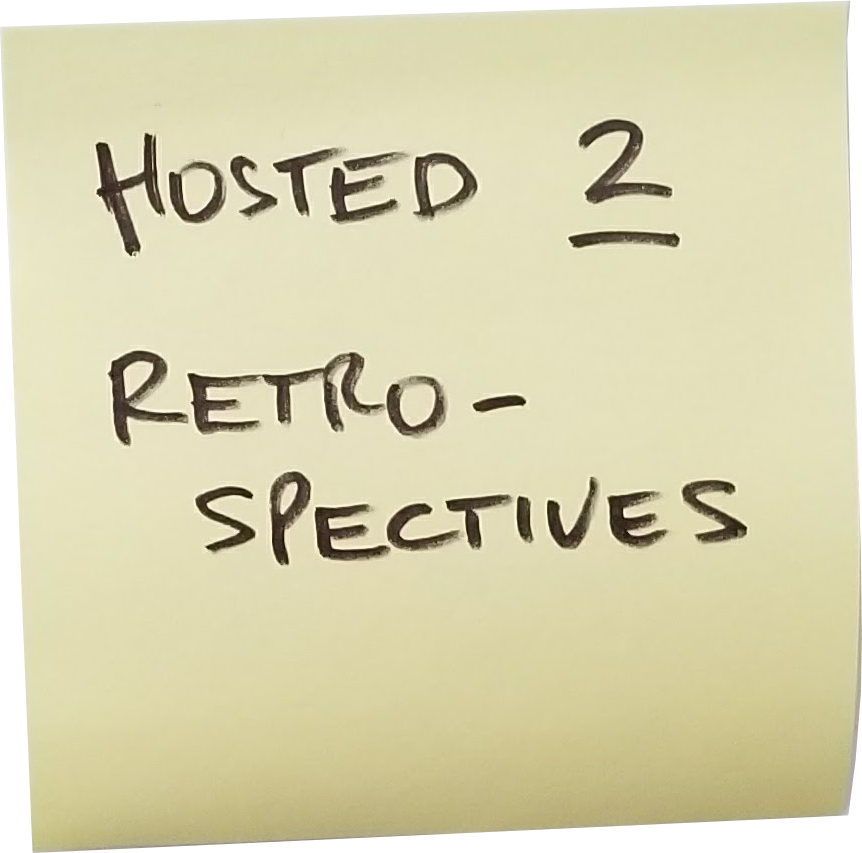 HOSTED 2
RETRO-
SPECTIVES